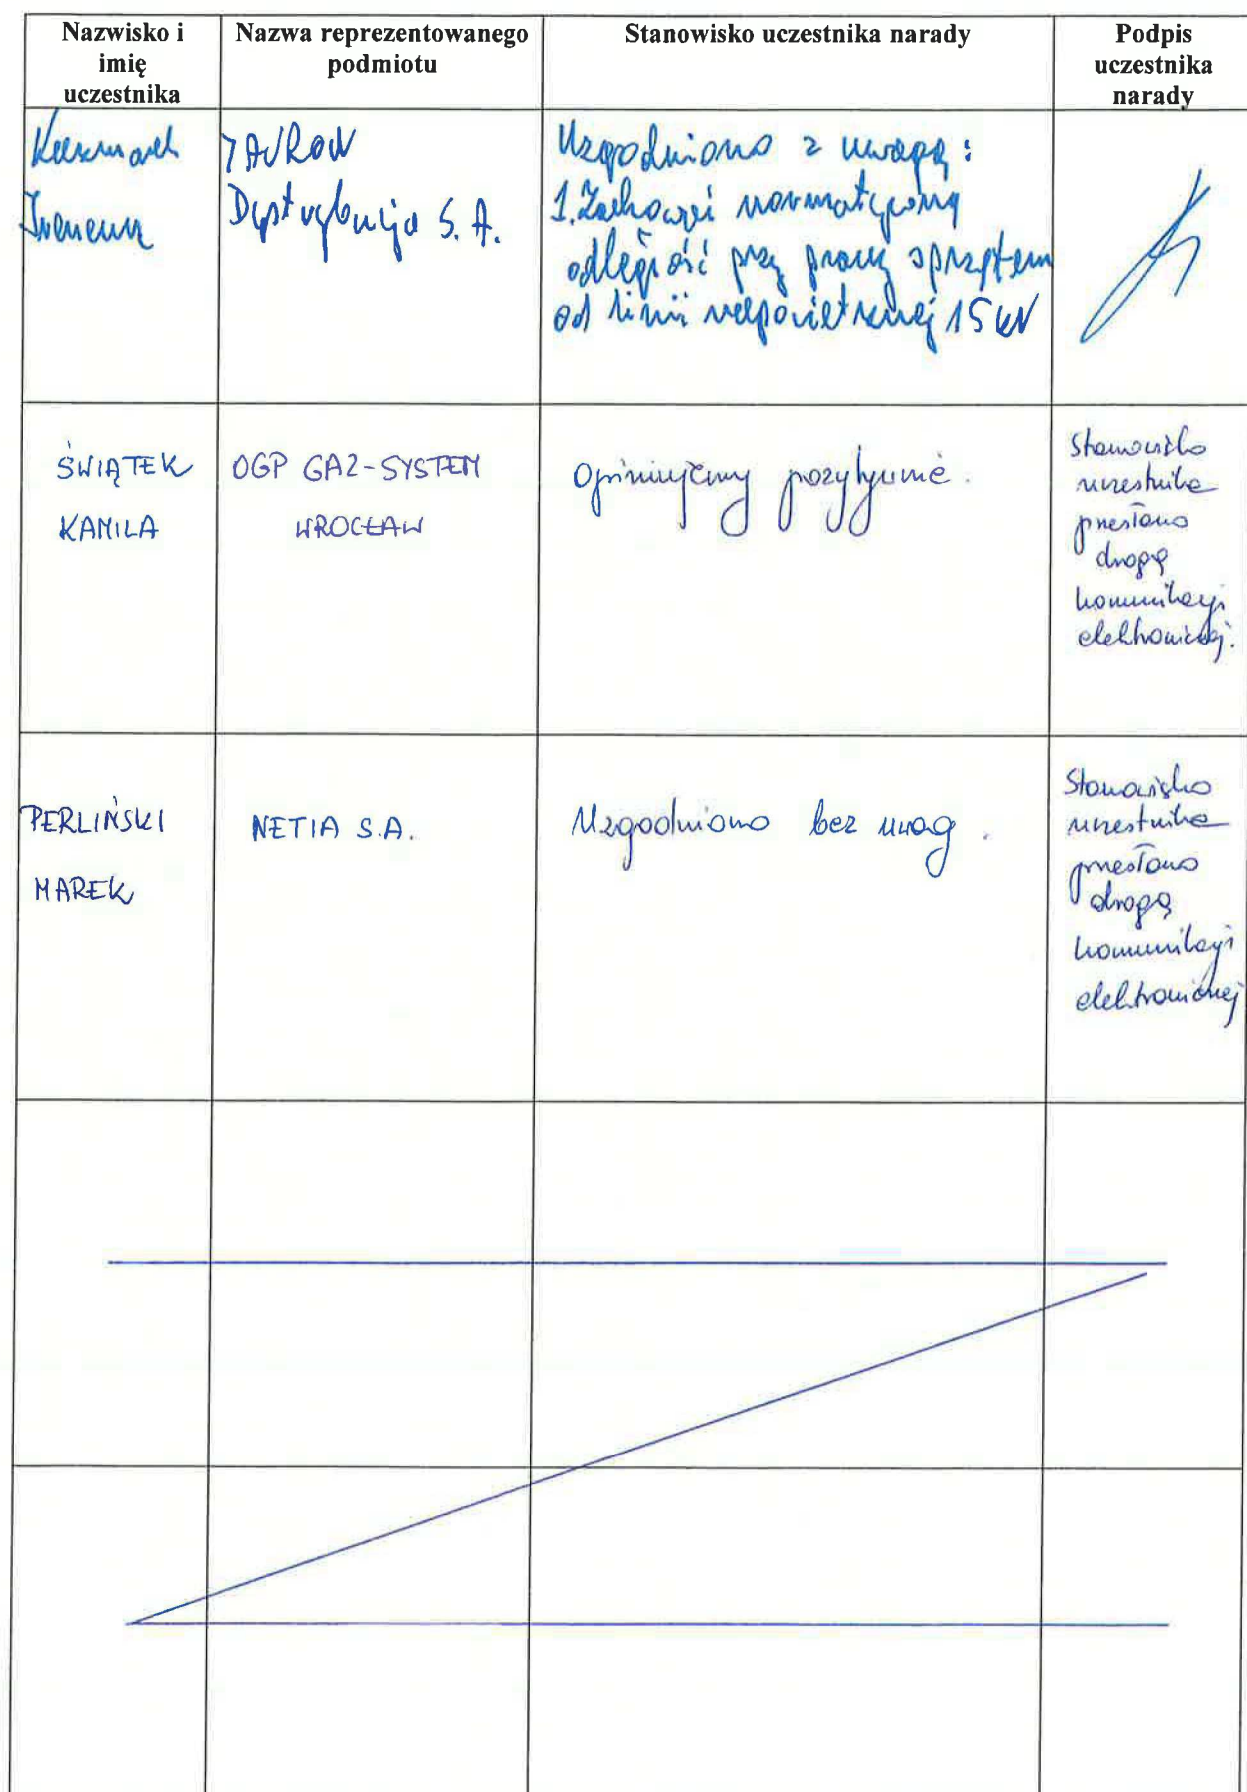 Nazwisko i
imię
uczestnika
Nazwa reprezentowanego
podmiotu
Stanowisko uczestnika narady
Podpis
uczestnika
narady
Ireneusz
TAURON
Dystrybucja S.A.
Uzgodniono z uwagą:
1. Zachować normatywną
odległość przy pracy sprzętem
od linii napowietrznej 15 kV
ŚWIĄTEK
KAMILA
OGP GAZ-SYSTEM
WROCŁAW
Opiniujemy pozytywnie.
Stanowisko
uczestnika
przesłano
drogą
komunikacji
elektronicznej.
PERLIŃSKI
MAREK
NETIA S.A.
Uzgodniono bez uwag.
Stanowisko
uczestnika
przesłano
drogą
komunikacji
elektronicznej